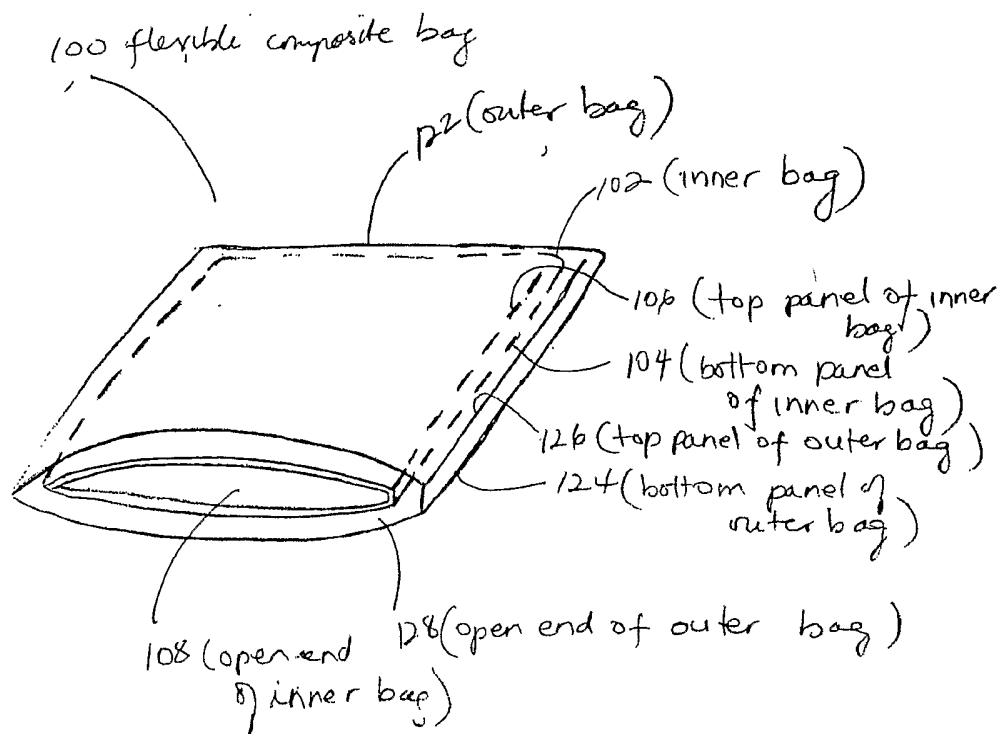 100 flexible composite bag
122 (outer bag)
102 (inner bag)
106 (top panel of inner
bag)
104 (bottom panel
of inner bag)
126 (top panel of outer bag)
124 (bottom panel of
outer bag)
128 (open end of outer bag)
108 (open end
of inner bag)